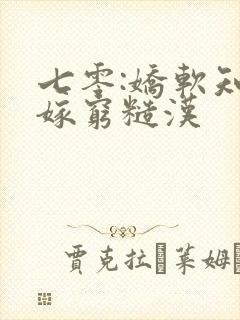 七零:嬌軟知
嫁窮糙漢
賈克拉 萊姆